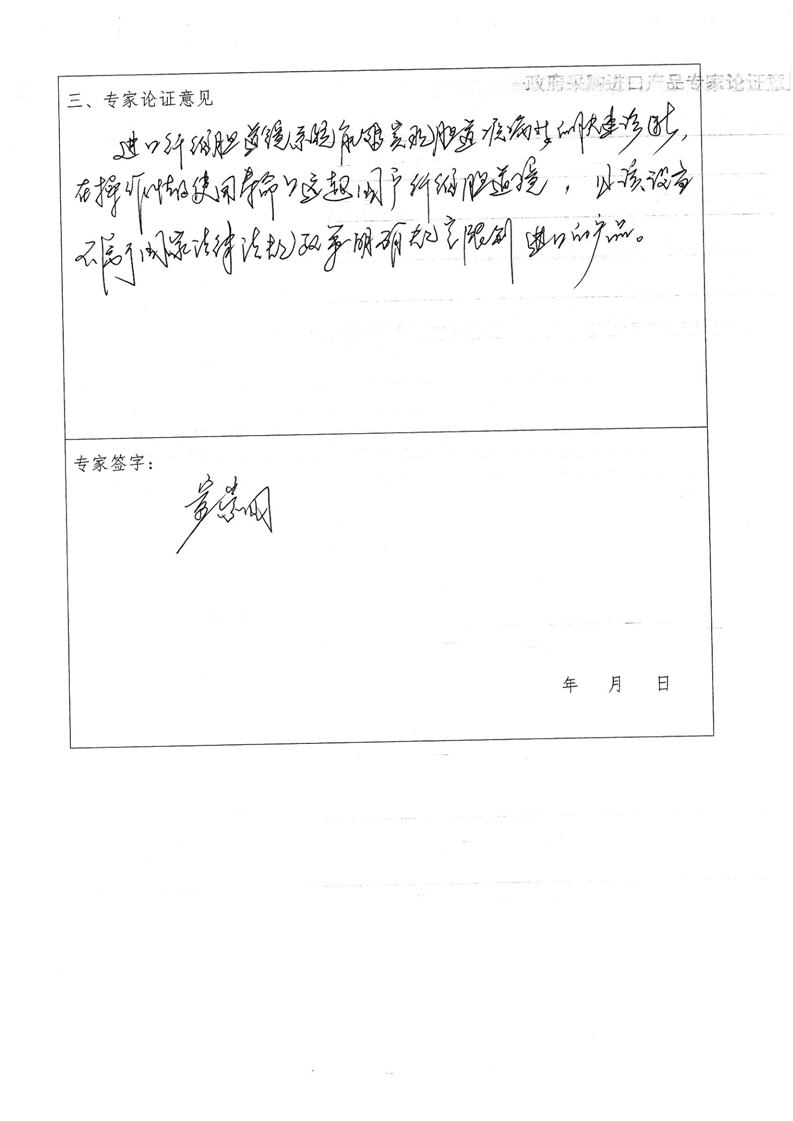 政府采购进口产品专家论证意见
三、专家论证意见
进口纤维胆道镜系统能够实现胆道疾病的快速诊断，
在操作性能使用寿命远超国产纤维胆道镜，且该设备
不属于国家法律法规政策明确规定限制进口的产品。
专家签字：
年 月 日